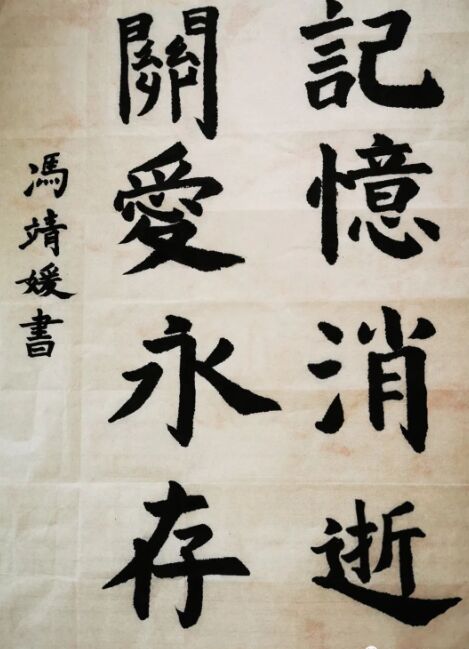 記憶消逝
關愛永存
馮靖媛書